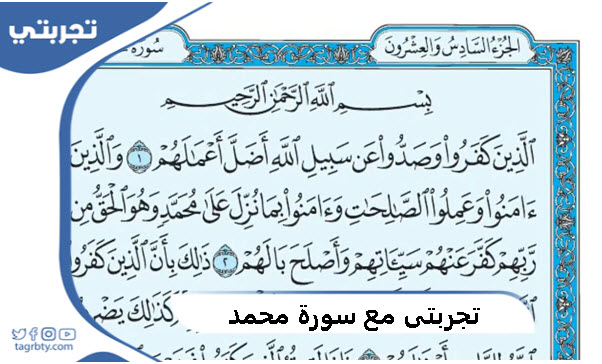 تجربتي
الجُزْءُ السَّادِسُ وَالعِشْرُونَ
سُورَة
بِسْمِ ٱللَّهِ ٱلرَّحْمَٰنِ ٱلرَّحِيمِ
ٱلَّذِينَ كَفَرُوا۟ وَصَدُّوا۟ عَن سَبِيلِ ٱللَّهِ أَضَلَّ أَعْمَٰلَهُمْ ١ وَٱلَّذِينَ
ءَامَنُوا۟ وَعَمِلُوا۟ ٱلصَّٰلِحَٰتِ وَءَامَنُوا۟ بِمَا نُزِّلَ عَلَىٰ مُحَمَّدٍ وَهُوَ ٱلْحَقُّ مِن
رَّبِّهِمْ كَفَّرَ عَنْهُمْ سَيِّـَٔاتِهِمْ وَأَصْلَحَ بَالَهُمْ ٢ ذَٰلِكَ بِأَنَّ ٱلَّذِينَ كَفَرُوا۟
كَذَٰلِكَ يَضْرِ
تجربتى مع سورة محمد
tagrbty.com